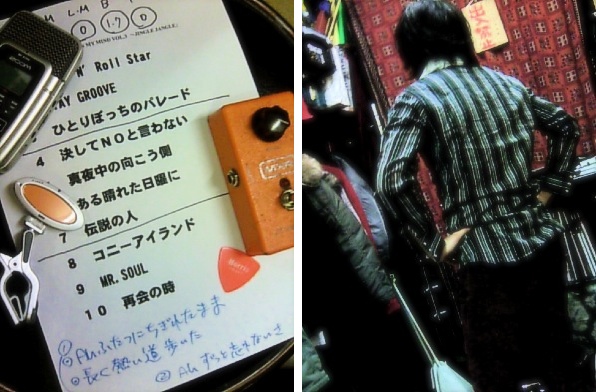 M L.M B
MY MIND VOL.3 ～JINGLE JANGLE～
N' Roll Star
GROOVE
ひとりぼっちのパレード
4 決してNOと言わない
真夜中の向こう側
ある晴れた日曜に
7 伝説の人
8 コニーアイランド
9 MR. SOUL
10 再会の時
① Ahふたつにちぎれたまま
長く熱い道歩いた
② Ah ずっと忘れないさ
MXR
立入禁止